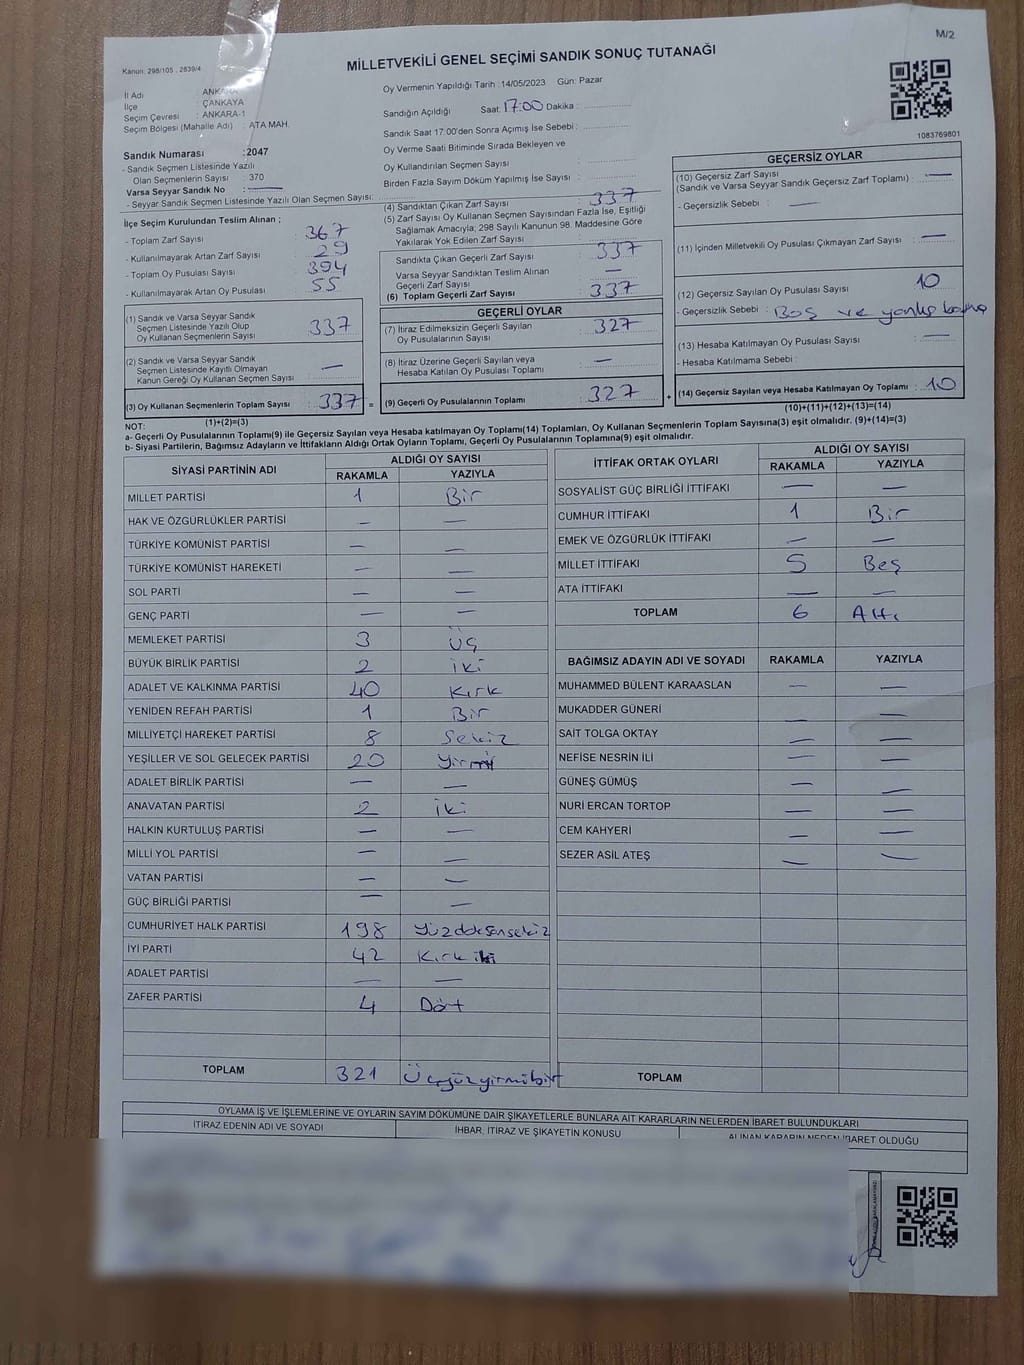 M/2
Kanun: 298/105 , 2839/4
MİLLETVEKİLİ GENEL SEÇİMİ SANDIK SONUÇ TUTANAĞI
İl Adı : ANKARA
İlçe : ÇANKAYA
Seçim Çevresi : ANKARA-1
Seçim Bölgesi (Mahalle Adı) : ATA MAH.
Sandık Numarası :2047
- Sandık Seçmen Listesinde Yazılı
Olan Seçmenlerin Sayısı : 370
Varsa Seyyar Sandık No : —
- Seyyar Sandık Seçmen Listesinde Yazılı Olan Seçmen Sayısı:
Oy Vermenin Yapıldığı Tarih :14/05/2023 Gün: Pazar
Sandığın Açıldığı Saat: 17:00 Dakika :
Sandık Saat 17:00'den Sonra Açımış İse Sebebi :
Oy Verme Saati Bitiminde Sırada Bekleyen ve
Oy Kullandırılan Seçmen Sayısı :
Birden Fazla Sayım Döküm Yapılmış İse Sayısı :
1083769801
İlçe Seçim Kurulundan Teslim Alınan ;
- Toplam Zarf Sayısı : 367
- Kullanılmayarak Artan Zarf Sayısı : 29
- Toplam Oy Pusulası Sayısı : 394
- Kullanılmayarak Artan Oy Pusulası : 55
(1) Sandık ve Varsa Seyyar Sandık
Seçmen Listesinde Yazılı Olup
Oy Kullanan Seçmenlerin Sayısı : 337
(2) Sandık ve Varsa Seyyar Sandık
Seçmen Listesinde Kayıtlı Olmayan
Kanun Gereği Oy Kullanan Seçmen Sayısı : —
(3) Oy Kullanan Seçmenlerin Toplam Sayısı : 337 =
(1)+(2)=(3)
(4) Sandıktan Çıkan Zarf Sayısı : 337
(5) Zarf Sayısı Oy Kullanan Seçmen Sayısından Fazla İse, Eşitliği
Sağlamak Amacıyla; 298 Sayılı Kanunun 98. Maddesine Göre
Yakılarak Yok Edilen Zarf Sayısı :
Sandıkta Çıkan Geçerli Zarf Sayısı : 337
Varsa Seyyar Sandıktan Teslim Alınan
Geçerli Zarf Sayısı : —
(6) Toplam Geçerli Zarf Sayısı : 337
GEÇERLİ OYLAR
(7) İtiraz Edilmeksizin Geçerli Sayılan
Oy Pusulalarının Sayısı : 327
(8) İtiraz Üzerine Geçerli Sayılan veya
Hesaba Katılan Oy Pusulası Toplamı : —
(9) Geçerli Oy Pusulalarının Toplamı : 327 +
GEÇERSİZ OYLAR
(10) Geçersiz Zarf Sayısı
(Sandık ve Varsa Seyyar Sandık Geçersiz Zarf Toplamı) : —
- Geçersizlik Sebebi : —
(11) İçinden Milletvekili Oy Pusulası Çıkmayan Zarf Sayısı : —
(12) Geçersiz Sayılan Oy Pusulası Sayısı : 10
- Geçersizlik Sebebi : Boş ve yanlış basma
(13) Hesaba Katılmayan Oy Pusulası Sayısı : —
- Hesaba Katılmama Sebebi :
(14) Geçersiz Sayılan veya Hesaba Katılmayan Oy Toplamı : 10
(10)+(11)+(12)+(13)=(14)
NOT:
a- Geçerli Oy Pusulalarının Toplamı(9) ile Geçersiz Sayılan veya Hesaba katılmayan Oy Toplamı(14) Toplamları, Oy Kullanan Seçmenlerin Toplam Sayısına(3) eşit olmalıdır. (9)+(14)=(3)
b- Siyasi Partilerin, Bağımsız Adayların ve İttifakların Aldığı Ortak Oyların Toplamı, Geçerli Oy Pusulalarının Toplamına(9) eşit olmalıdır.
SİYASİ PARTİNİN ADI ALDIĞI OY SAYISI
RAKAMLA YAZIYLA
MİLLET PARTİSİ 1 Bir
HAK VE ÖZGÜRLÜKLER PARTİSİ — —
TÜRKİYE KOMÜNİST PARTİSİ — —
TÜRKİYE KOMÜNİST HAREKETİ — —
SOL PARTİ — —
GENÇ PARTİ — —
MEMLEKET PARTİSİ 3 Üç
BÜYÜK BİRLİK PARTİSİ 2 iki
ADALET VE KALKINMA PARTİSİ 40 Kırk
YENİDEN REFAH PARTİSİ 1 Bir
MİLLİYETÇİ HAREKET PARTİSİ 8 Sekiz
YEŞİLLER VE SOL GELECEK PARTİSİ 20 Yirmi
ADALET BİRLİK PARTİSİ — —
ANAVATAN PARTİSİ 2 iki
HALKIN KURTULUŞ PARTİSİ — —
MİLLİ YOL PARTİSİ — —
VATAN PARTİSİ — —
GÜÇ BİRLİĞİ PARTİSİ — —
CUMHURİYET HALK PARTİSİ 198 Yüzdoksansekiz
İYİ PARTİ 42 Kırk iki
ADALET PARTİSİ — —
ZAFER PARTİSİ 4 Dört
TOPLAM 321 Üçyüzyirmibir
İTTİFAK ORTAK OYLARI ALDIĞI OY SAYISI
RAKAMLA YAZIYLA
SOSYALİST GÜÇ BİRLİĞİ İTTİFAKI — —
CUMHUR İTTİFAKI 1 Bir
EMEK VE ÖZGÜRLÜK İTTİFAKI — —
MİLLET İTTİFAKI 5 Beş
ATA İTTİFAKI — —
TOPLAM 6 Altı
BAĞIMSIZ ADAYIN ADI VE SOYADI RAKAMLA YAZIYLA
MUHAMMED BÜLENT KARAASLAN — —
MUKADDER GÜNERİ — —
SAİT TOLGA OKTAY — —
NEFİSE NESRİN İLİ — —
GÜNEŞ GÜMÜŞ — —
NURİ ERCAN TORTOP — —
CEM KAHYERİ — —
SEZER ASİL ATEŞ — —
TOPLAM
OYLAMA İŞ VE İŞLEMLERİNE VE OYLARIN SAYIM DÖKÜMÜNE DAİR ŞİKAYETLERLE BUNLARA AİT KARARLARIN NELERDEN İBARET BULUNDUKLARI
İTİRAZ EDENİN ADI VE SOYADI İHBAR, İTİRAZ VE ŞİKAYETİN KONUSU ALINAN KARARIN NEDEN İBARET OLDUĞU